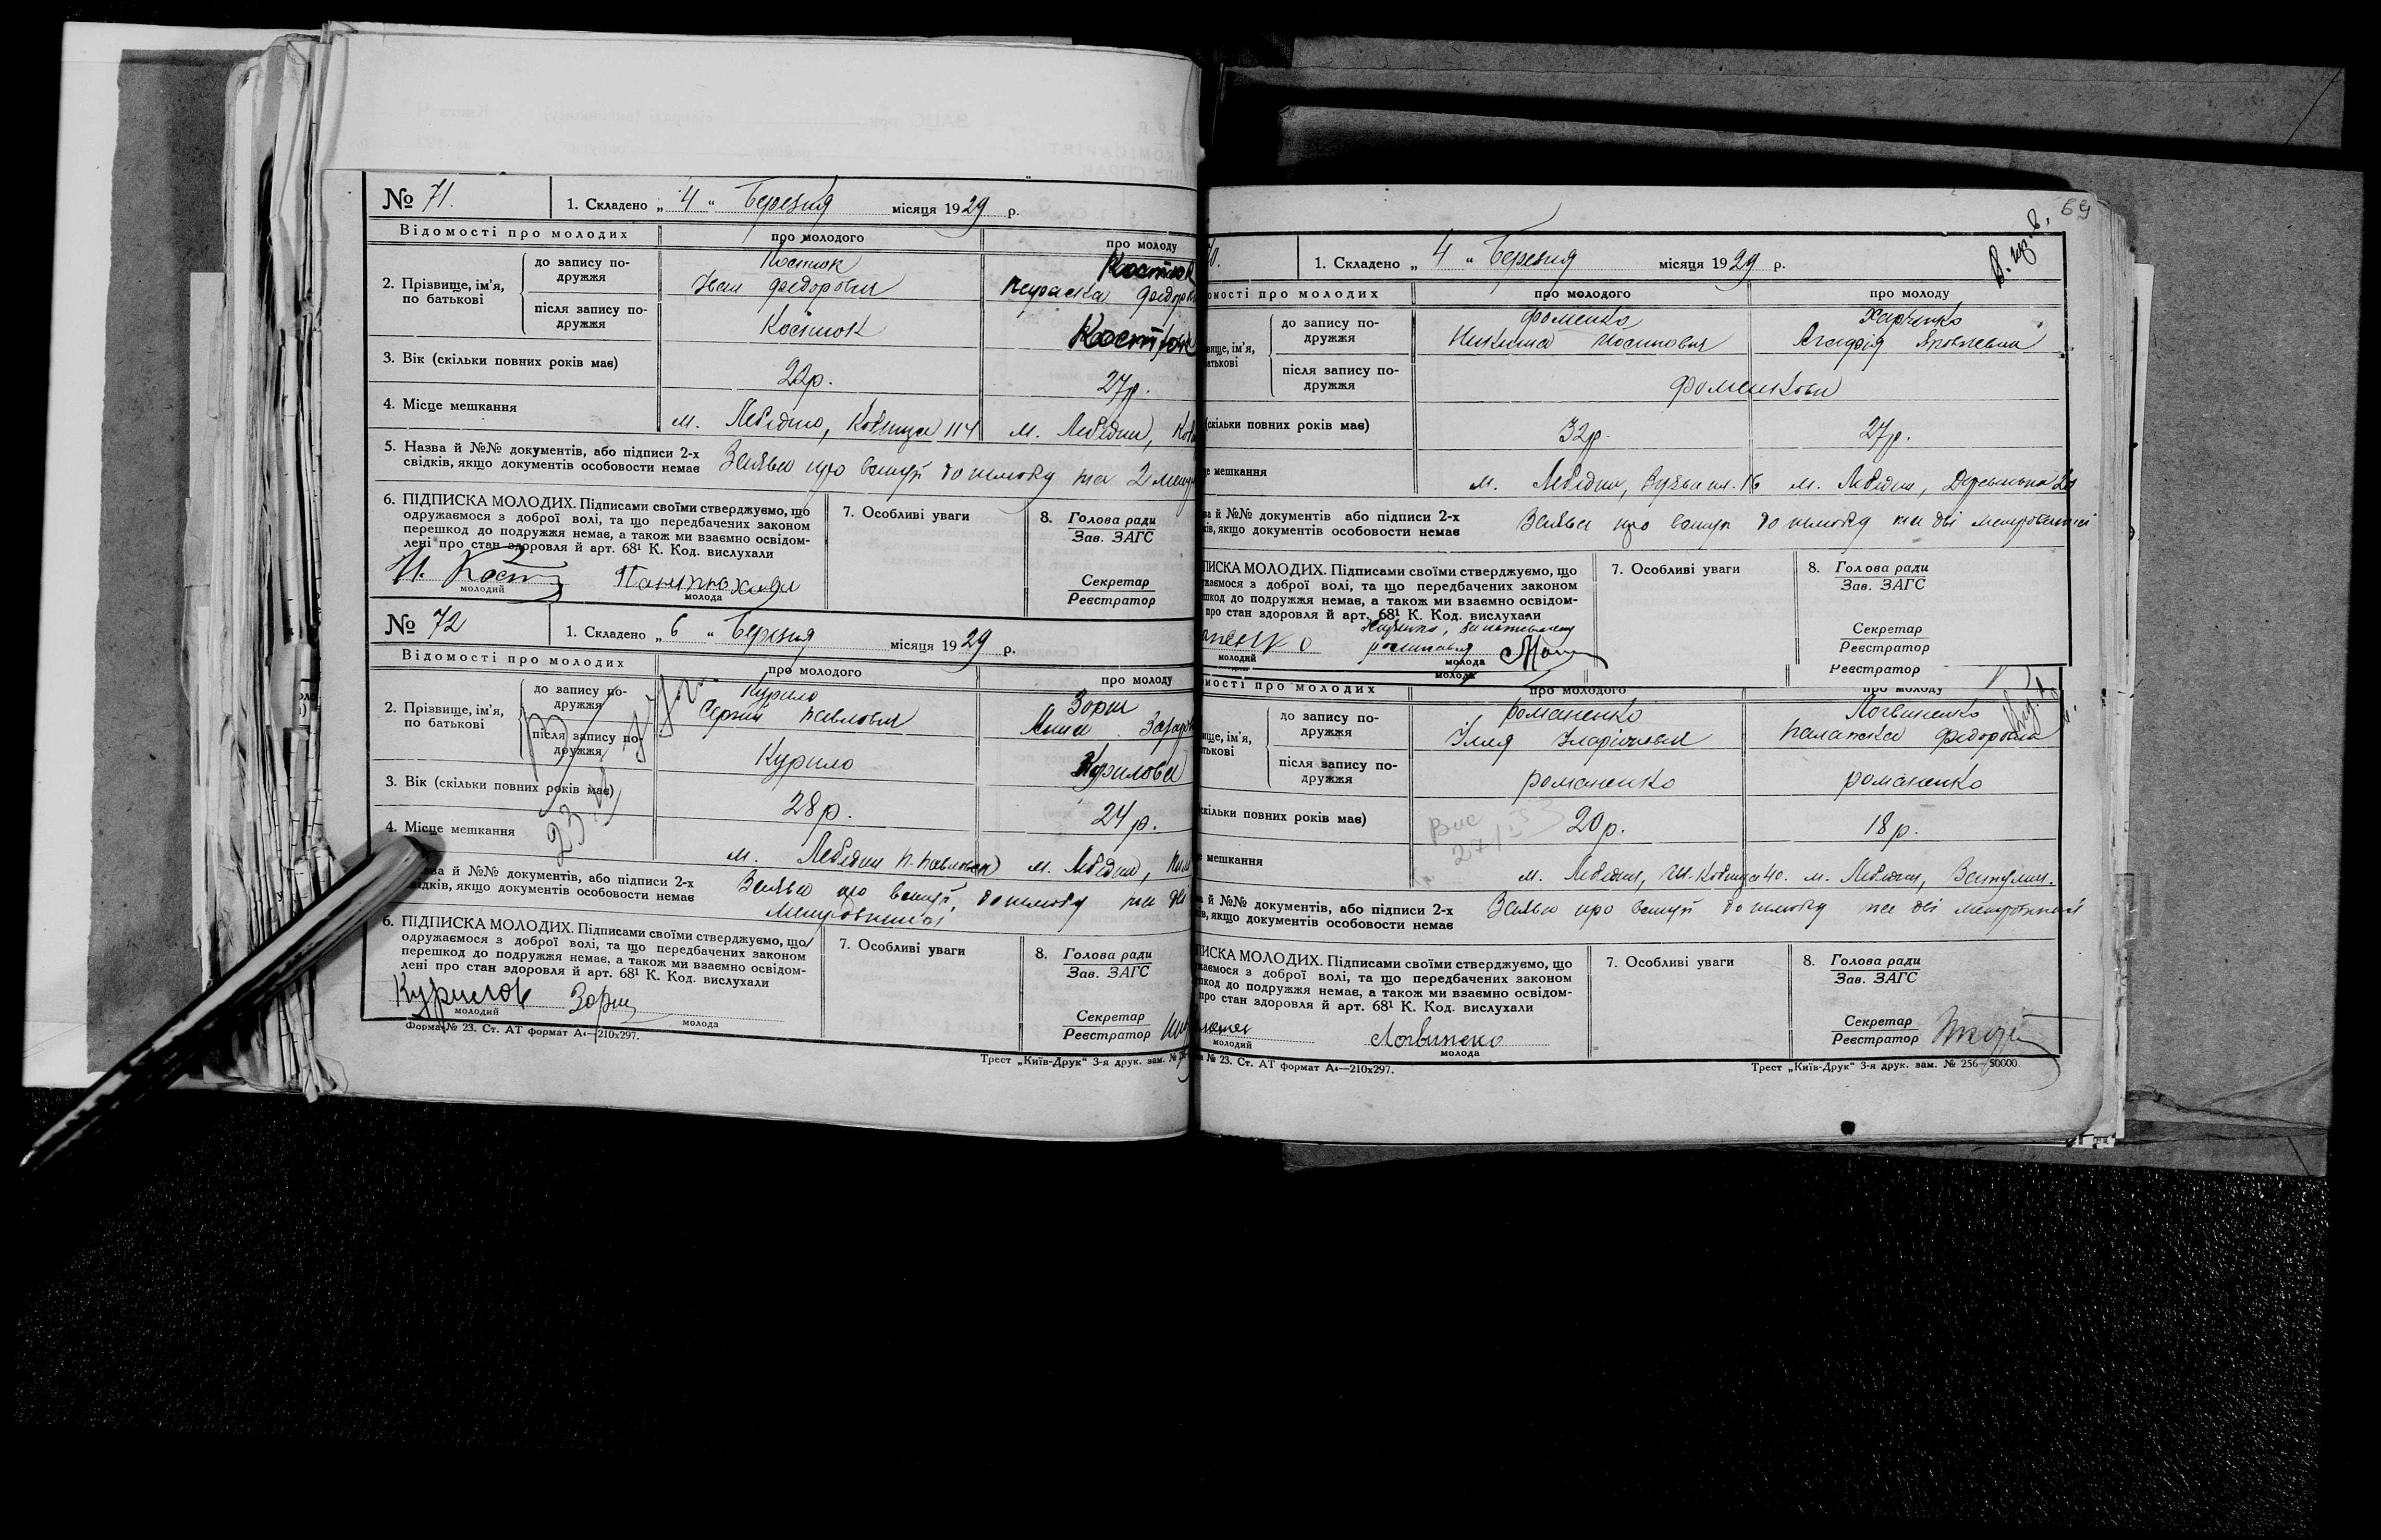 № 71. 1. Складено „ 4 " Березня місяця 1929 р.
Відомості про молодих про молодого про молоду
2. Прізвище, ім'я, по батькові
до запису по-
дружжя
Костюк
Іван Федорович
Костюк
Параска Федор
після запису по-
дружжя
Костюк
Костюк
3. Вік (скільки повних років має) 22р. 27р.
4. Місце мешкання м. Лебедин, Кобища 114 м. Лебедин, Коб
5. Назва й №№ документів, або підписи 2-х
свідків, якщо документів особовости немає
Заява про вступ до шлюбу та 2
6. ПІДПИСКА МОЛОДИХ. Підписами своїми стверджуємо, що
одружаємося з доброї волі, та що передбачених законом
перешкод до подружжя немає, а також ми взаємно освідом-
лені про стан здоровля й арт. 68¹ К. Код. вислухали
И. Кост
молодий молода
7. Особливі уваги
8. Голова ради
Зав. ЗАГС
Секретар
Реєстратор
№ 72 1. Складено „ 6 " Березня місяця 1929 р.
Відомості про молодих про молодого про молоду
2. Прізвище, ім'я,
по батькові
до запису по-
дружжя
Курило
Сергій Павлович
Зоря
Анна
після запису по-
дружжя
Курило
Курилова
3. Вік (скільки повних років має) 28р. 24р.
4. Місце мешкання м. Лебедин м. Лебедин,
зва й №№ документів, або підписи 2-х
ідків, якщо документів особовости немає
Заява про вступ до шлюбу та дві
6. ПІДПИСКА МОЛОДИХ. Підписами своїми стверджуємо, що
одружаємося з доброї волі, та що передбачених законом
перешкод до подружжя немає, а також ми взаємно освідом-
лені про стан здоровля й арт. 68¹ К. Код. вислухали
Курилов Зоря
молодий молода
7. Особливі уваги
8. Голова ради
Зав. ЗАГС
Секретар
Реєстратор
Форма № 23. Ст. АТ формат А4—210x297.
Трест „Київ-Друк" 3-я друк. зам. №
69
0. 1. Складено „ 4 " Березня місяця 1929 р.
омості про молодих про молодого про молоду
вище, ім'я,
батькові
до запису по-
дружжя
Фоменко
Никита Иосипович
Харченко
Агафія Яковлевна
після запису по-
дружжя
Фоменкови
(скільки повних років має) 32р. 27р.
е мешкання м. Лебедин, 16 м. Лебедин, 20
ва й №№ документів або підписи 2-х
ків, якщо документів особовости немає
Заява про вступ до шлюбу та дві
ПИСКА МОЛОДИХ. Підписами своїми стверджуємо, що
жаємося з доброї волі, та що передбачених законом
шкод до подружжя немає, а також ми взаємно освідом-
про стан здоровля й арт. 68¹ К. Код. вислухали
молодий молода
7. Особливі уваги
8. Голова ради
Зав. ЗАГС
Секретар
Реєстратор
молода
Реєстратор
мості про молодих про молодого про молоду
ище, ім'я,
тькові
до запису по-
дружжя
Романенко
Ілля Іларіонович
Логвиненко
Палажка Федоровна
після запису по-
дружжя
Романенко
Романенко
скільки повних років має) 20р. 18р.
е мешкання м. Лебедин, 40. м. Лебедин,
а й №№ документів, або підписи 2-х
ів, якщо документів особовости немає
Заява про вступ до шлюбу та дві
ПИСКА МОЛОДИХ. Підписами своїми стверджуємо, що
жаємося з доброї волі, та що передбачених законом
шкод до подружжя немає, а також ми взаємно освідом-
про стан здоровля й арт. 68¹ К. Код. вислухали
Логвинеко
молодий молода
7. Особливі уваги
8. Голова ради
Зав. ЗАГС
Секретар
Реєстратор
а № 23. Ст. АТ формат А4—210x297.
Трест „Київ-Друк" 3-я друк. зам. № 256—50000